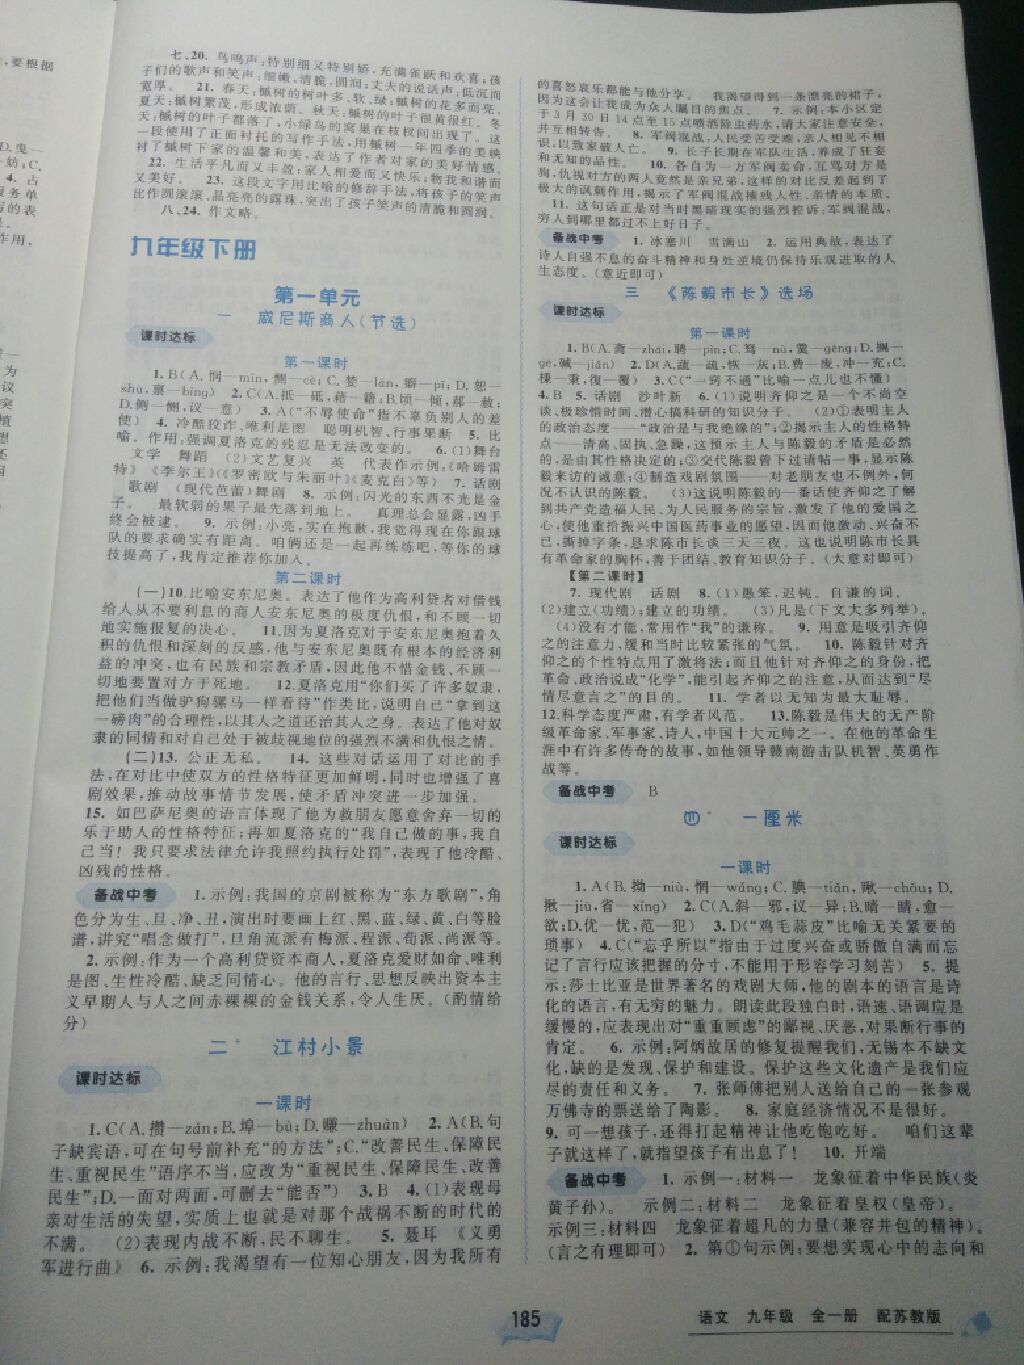 七、20. 鸟鸣声:特别细又特别娇,充满雀跃和欢喜,孩
子们的歌声和笑声:细嫩,清脆,圆润;丈夫的说话声,低沉而
宽厚。 21. 春天:槭树的树叶多、软、绿;槭树的花多而亮。
夏天:槭树繁茂,形成浓荫。秋天:槭树的叶子很黄很红。冬
天:槭树的叶子都落了,小绿鸟的窝巢在枝桠间出现了。这
一段使用了正面衬托的写作手法,用槭树一年四季的美映
衬了槭树下家的温馨和美,表达了作者对家的美好情感。
22. 生活平凡而又丰盈;家人相爱而又快乐;物我和谐而
又美好。 23. 这段文字用比喻的修辞手法,将孩子的笑声
比作圆滚滚、晶亮亮的露珠,突出了孩子笑声的清脆和圆润。
八、24. 作文略。
九年级下册
第一单元
一 威尼斯商人(节选)
课时达标
第一课时
1. B(A. 悯—mǐn,恻—cè;C. 婪—lán,癖—pǐ;D. 恕—
shù,禀—bǐng) 2. C(A. 抵—砥,藉—籍;B. 顷—倾,那—赦;
D. 侧—恻,议—意) 3. A(“不辱使命”指不辜负别人的差
使) 4. 冷酷狡诈、唯利是图 聪明机智、行事果断 5. 比
喻。作用:强调夏洛克的残忍是无法改变的。 6. (1)舞台
文学 舞蹈 (2)文艺复兴 英 代表作示例:《哈姆雷
特》《李尔王》《罗密欧与朱丽叶》《麦克白》等) 7. 话剧
歌剧 (现代芭蕾)舞剧 8. 示例:闪光的东西不光是金
子。 最软弱的果子最先落到地上。 真理总会显露,凶手
终会被逮。 9. 示例:小亮,实在抱歉,我觉得现在你跟球
队的要求确实有距离。咱俩还是一起再练练吧,等你的球
技提高了,我肯定推荐你加入。
第二课时
(一)10. 比喻安东尼奥。表达了他作为高利贷者对借钱
给人从不要利息的商人安东尼奥的极度仇恨,和不顾一切
地实施报复的决心。 11. 因为夏洛克对于安东尼奥抱着久
积的仇恨和深刻的反感,他与安东尼奥既有根本的经济利
益的冲突,也有民族和宗教矛盾,因此他不惜金钱、不顾一
切地要置对方于死地。 12. 夏洛克用“你们买了许多奴隶,
把他们当做驴狗骡马一样看待”作类比,说明自己“拿到这
一磅肉”的合理性,以其人之道还治其人之身。表达了他对奴
隶的同情和对自己处于被歧视地位的强烈不满和仇恨之情。
(二)13. 公正无私。 14. 这些对话运用了对比的手
法,在对比中使双方的性格特征更加鲜明,同时也增强了喜
剧效果,推动故事情节发展,使矛盾冲突进一步加强。
15. 如巴萨尼奥的语言体现了他为救朋友愿意舍弃一切的
乐于助人的性格特征;再如夏洛克的“我自己做的事,我自
己当!我只要求法律允许我照约执行处罚”,表现了他冷酷、
凶残的性格。
备战中考 1. 示例:我国的京剧被称为“东方歌剧”,角
色分为生、旦、净、丑,演出时要画上红、黑、蓝、绿、黄、白等脸
谱,讲究“唱念做打”,旦角流派有梅派、程派、荀派、尚派等。
2. 示例:作为一个高利贷资本商人,夏洛克爱财如命、唯利
是图、生性冷酷、缺乏同情心。他的言行、思想反映出资本主
义早期人与人之间赤裸裸的金钱关系,令人生厌。(酌情给
分)
二* 江村小景
课时达标
一课时
1. C(A. 攒—zǎn;B. 埠—bù;D. 赚—zhuàn) 2. A(B. 句
子缺宾语,可在句号前补充“的方法”;C.“改善民生、保障民
生、重视民生”语序不当,应改为“重视民生、保障民生、改善
民生”;D. 一面对两面,可删去“能否”) 3. B 4. (1)表现母
亲对生活的失望,实质上也就是对那个战祸不断的时代的
不满。 (2)表现内战不断,民不聊生。 5. 聂耳 《义勇
军进行曲》 6. 示例:我渴望有一位知心朋友,因为我所有
的喜怒哀乐都能与他分享。 我渴望得到一条漂亮的裙子,
因为这会让我成为众人瞩目的焦点。 7. 示例:本小区定
于3月30日14点至16点喷洒除虫药水,请大家注意安全,
并互相转告。 8. 军阀混战,人民受苦受难,亲人相见不相
识,以致家破人亡。 9. 长子长期在军队生活,养成了狂妄
和无知的品性。 10. 各自为一方军阀卖命,互骂对方是
狗,仇视对方的两人竟然是亲兄弟,这样的对比反差起到了
极大的讽刺作用,揭示了军阀混战摧残人性、亲情的本质。
11. 这句话正是对当时黑暗现实的强烈控诉:军阀混战,
穷人到哪里都过不上好日子。
备战中考 1. 冰塞川 雪满山 2. 运用典故,表达了
诗人自强不息的奋斗精神和身处逆境仍保持乐观进取的人
生态度。(意近即可)
三 《陈毅市长》选场
课时达标
第一课时
1. B(A. 斋—zhāi,聘—pìn;C. 驽—nú,羹—gēng;D. 搁—
gē,碱—jiǎn) 2. D(A. 蔬—疏,恢—灰;B. 费—废,冲—充;C.
棟—秉,復—覆) 3. C(“一窍不通”比喻一点儿也不懂)
4. B 5. 话剧 沙叶新 6. (1)说明齐仰之是一个不尚空
谈、极珍惜时间、潜心搞科研的知识分子。 (2)①表明主人
的政治态度——“政治是与我绝缘的”;②揭示主人的性格特
点——清高、固执、急躁,这预示主人与陈毅的矛盾是必然
的,是由其性格决定的;③交代陈毅曾下过请帖一事,显示陈
毅来访的诚意;④制造戏剧氛围——对老朋友也不例外,何
况不认识的陈毅。 (3)这说明陈毅的一番话使齐仰之了解
到共产党造福人民、为人民服务的宗旨,激发了他的爱国之
心,使他重拾振兴中国医药事业的愿望,因而他激动、兴奋不
已,撕掉字条,恳求陈市长谈三天三夜。这也说明陈市长具
有革命家的胸怀,善于团结、教育知识分子。(大意对即可)
【第二课时】
7. 现代剧 话剧 8. (1)愚笨,迟钝。自谦的词。
(2)建立(功绩);建立的功绩。 (3)凡是(下文大多列举)。
(4)没有才能,常用作“我”的谦称。 9. 用意是吸引齐仰
之的注意力,缓和当时比较紧张的气氛。 10. 陈毅针对齐
仰之的个性特点用了激将法;而且他针对齐仰之的身份,把
革命、政治说成“化学”,能引起齐仰之的注意,从而达到“尽
情尽意言之”的目的。 11. 学者以无知为最大耻辱。
12. 科学态度严肃,有学者风范。 13. 陈毅是伟大的无产阶
级革命家、军事家、诗人,中国十大元帅之一。在他的革命生
涯中有许多传奇的故事,如他领导赣南游击队机智、英勇作
战等。
备战中考 B
四* 一厘米
课时达标
一课时
1. A(B. 拗—niù,惘—wǎng;C. 腆—tiǎn,瞅—chǒu;D.
揪—jiū,省—xǐng) 2. C(A. 斜—邪,议—异;B. 晴—睛,愈—
欲;D. 优—忧,范—犯) 3. D(“鸡毛蒜皮”比喻无关紧要的
琐事) 4. C(“忘乎所以”指由于过度兴奋或骄傲自满而忘
记了言行应该把握的分寸,不能用于形容学习刻苦) 5. 提
示:莎士比亚是世界著名的戏剧大师,他的剧本的语言是诗
化的语言,有无穷的魅力。朗读此段独白时,语速、语调应是
缓慢的,应表现出对“重重顾虑”的鄙视、厌恶,对果断行事的
肯定。 6. 示例:阿炳故居的修复提醒我们,无锡本不缺文
化,缺的是发现、保护和建设。保护这些文化遗产是我们应
尽的责任和义务。 7. 张师傅把别人送给自己的一张参观
万佛寺的票送给了陶影。 8. 家庭经济情况不是很好。
9. 可一想孩子,还得打起精神让他吃饱吃好。 咱们这辈
子就这样了,就指望孩子有出息了! 10. 开端
备战中考 1. 示例一:材料一 龙象征着中华民族(炎
黄子孙)。 示例二:材料二 龙象征着皇权(皇帝)。
示例三:材料四 龙象征着超凡的力量(兼容并包的精神)。
(言之有理即可) 2. 第①句示例:要想实现心中的志向和
185
语文 九年级 全一册 配苏教版